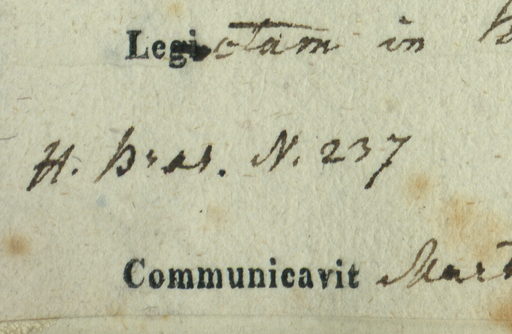 Legi ctam in
H. Bras. N. 237
Communicavit Mart